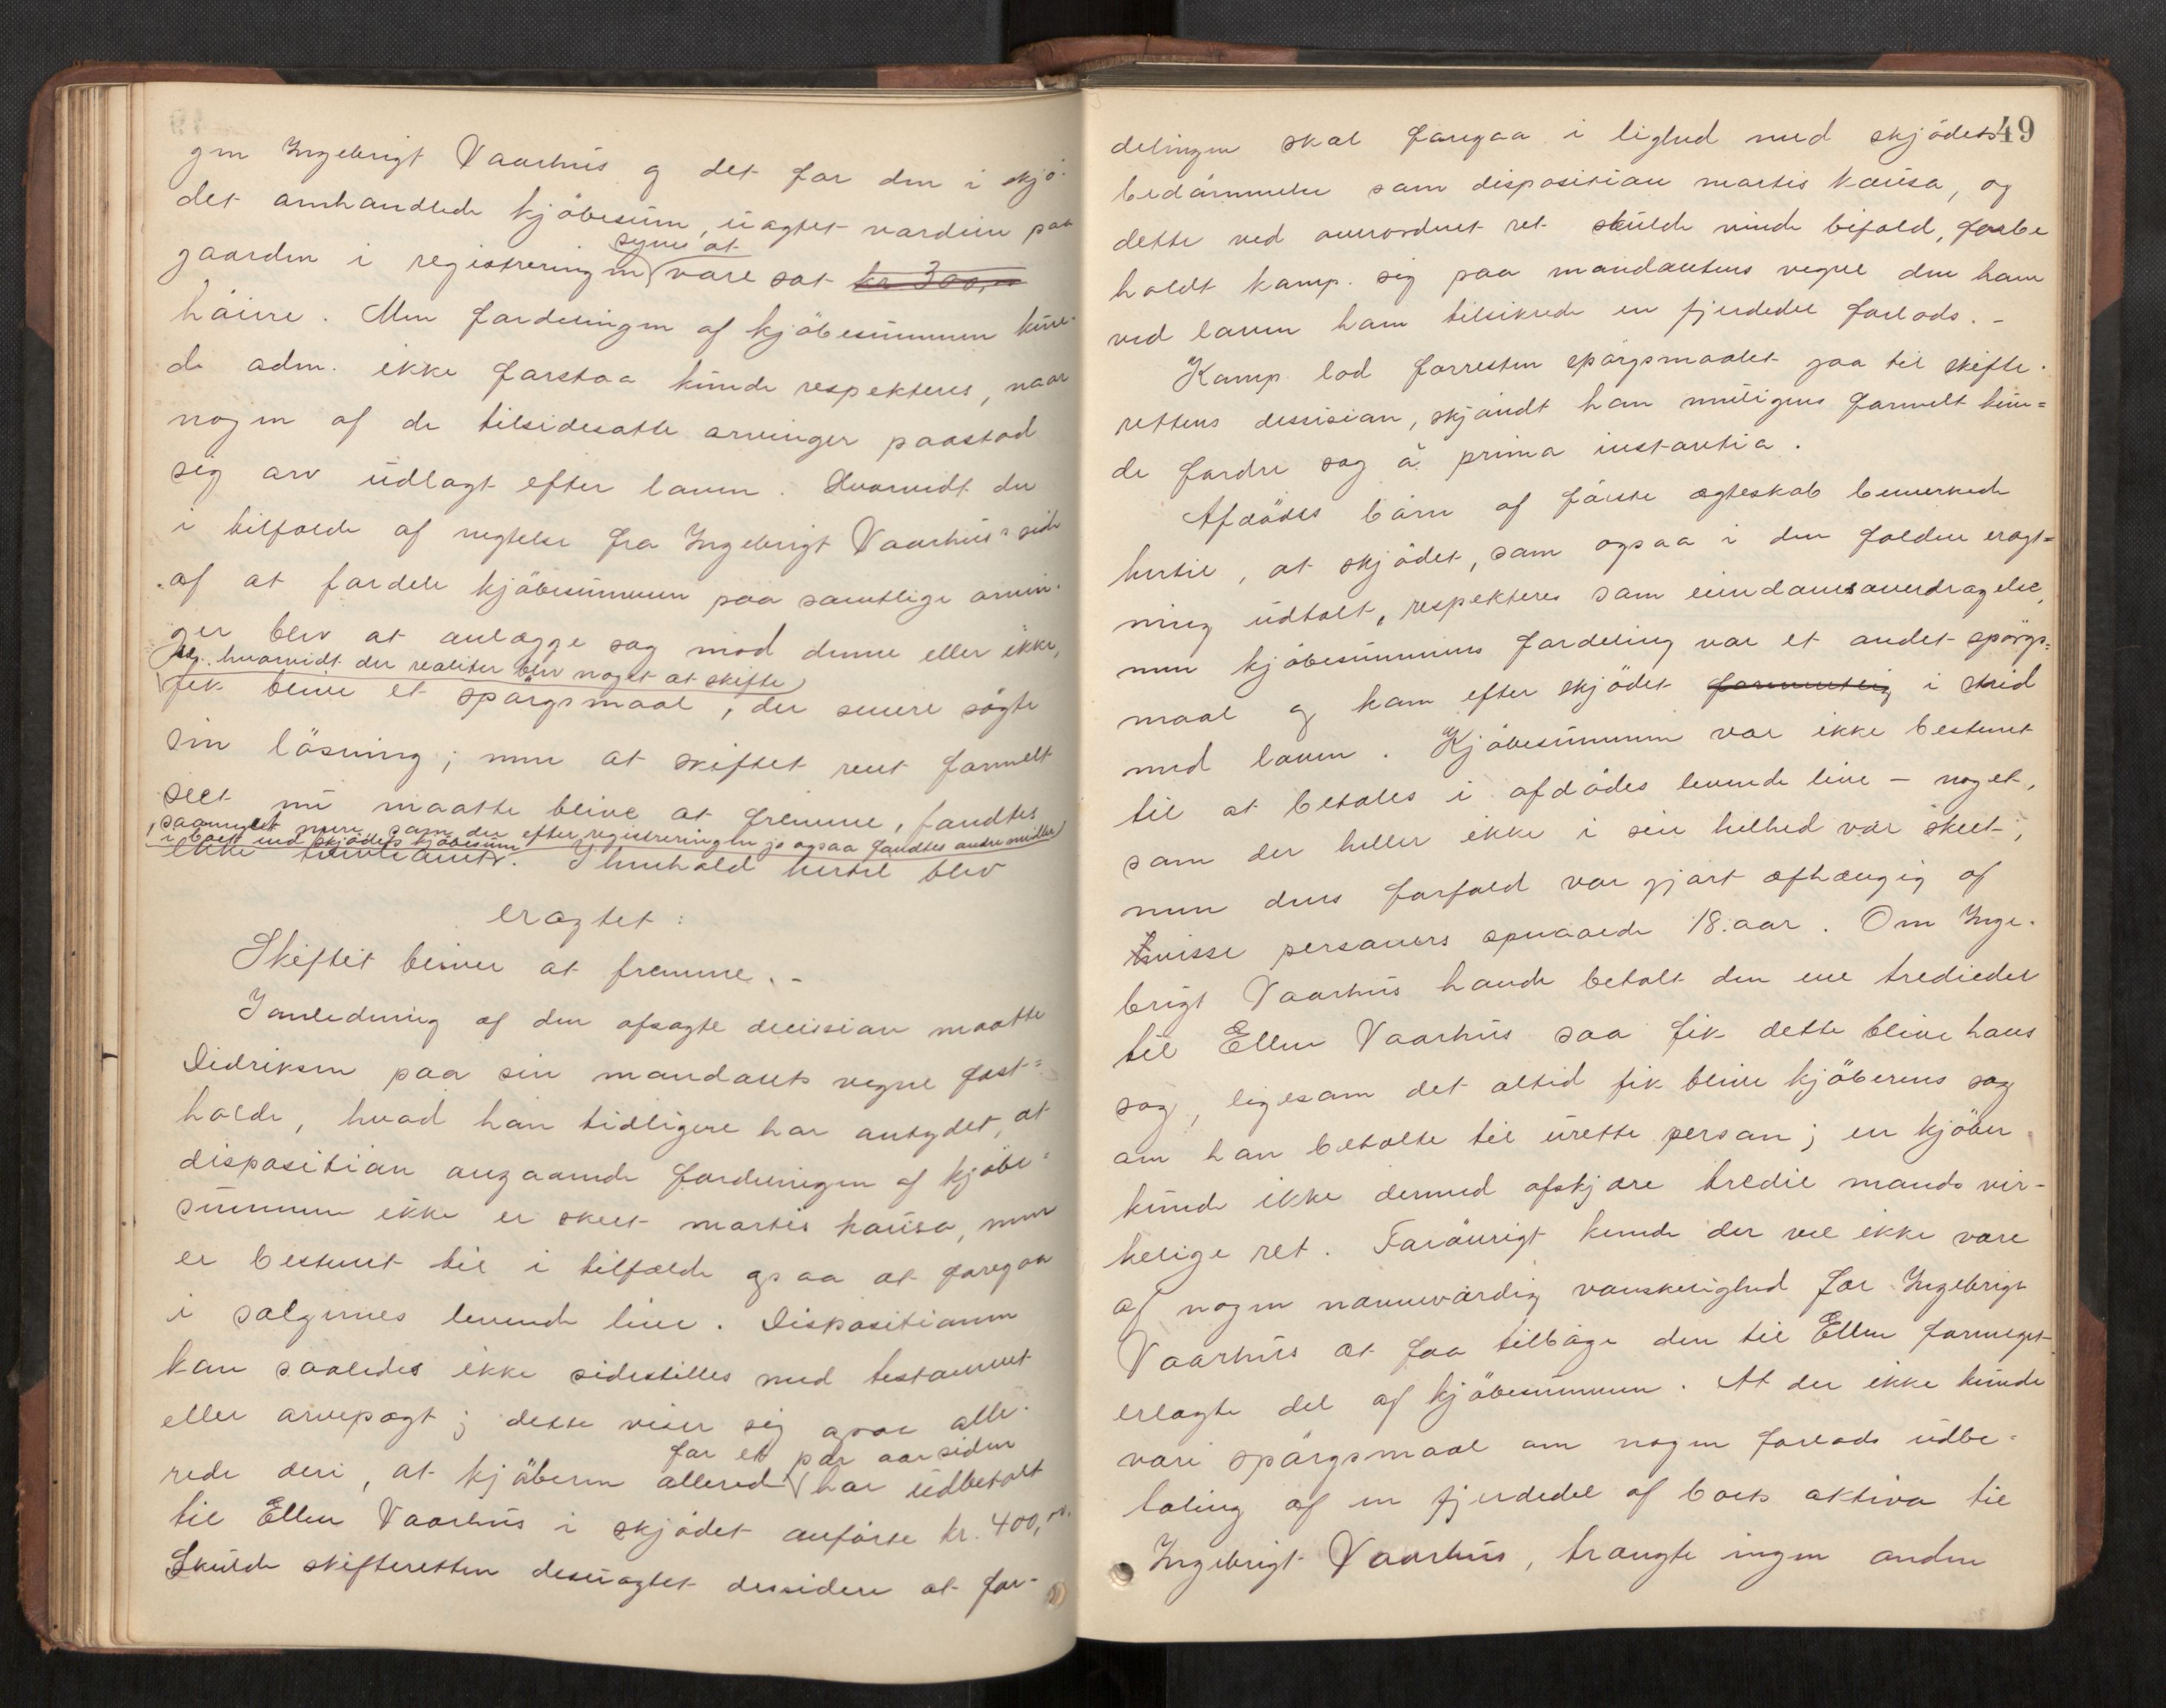 gen Ingebrigt Vaarhus og det for den i skjö-
det omhandlede kjöbesum, uagtet værdien paa
gaarden i registreringen synes at være sat kr 300,00
höiere. Men fordelingen af kjöbesummen kun-
de adm. ikke forstaa kunde respekteres, naar
nogen af de tilsidesatte arvinger paastod
sig arv udlagt efter loven. Hvorvidt der
i tilfælde af negtelse fra Ingebrigt Vaarhus's side
af at fordele kjöbesummen paa samtlige arvin-
ger blev at anlægge sag mod denne eller ikke,
hvorvidt der realiter blev noget at skifte
fik blive et spörgsmaal, der senere sögte
sin lösning; men at skiftet rent formelt
seet nu maatte blive at fremme, fandtes
saameget mere som der efter registreringen jo ogsaa fandtes andre midler
i boet end skjödets kjöbesum
ikke tvivlsomt. I henhold hertil blev
eragtet:
Skiftet bliver at fremme. -
I anledning af den afsagte decision maatte
Didriksen paa sin mandants vegne fast=
holde, hvad han tidligere har antydet, at
disposition angaaende fordelingen af kjöbe=
summen ikke er skeet mortis kausa, men
er bestemt til i tilfælde ogsaa at foregaa
i sælgernes levende live. Dispositionen
kan saaledes ikke sidestilles med testament
eller arvepagt; dette viser sig ogsaa alle-
rede deri, at kjöberen allerede for et par aar siden har udbetalt
til Ellen Vaarhus i skjödet anförte kr. 400,00.
Skulde skifteretten desuagtet dessidere at for-
49
delingen skal foregaa i lighed med skjödets
bedömmelse som disposition mortis kausa, og
dette ved overordnet ret skulde vinde bifald, forbe
holdt komp. sig paa mandantens vegne den ham
ved loven ham tilsikrede en fjerdedel forlods. -
Komp. lod forresten spörgsmaalet gaa til skifte-
rettens dessision, skjöndt han muligens formelt kun=
de fordre sag à prima instantia.
Afdödes börn af förste ægteskab bemerkede
hertil, at skjödet, som ogsaa i den faldne eragt=
ning udtalt, respekteres som eiendomsoverdragelse,
men kjöbesummens fordeling var et andet spörgs=
maal og kom efter skjödet formentlig i strid
med loven. Kjöbesummen var ikke bestemt
til at betales i afdödes levende live - noget,
som der heller ikke i sin helhed var skeet;
men dens forfald var gjort afhængig af
visse personers opnaaede 18. aar. Om Inge-
brigt Vaarhus havde betalt den ene trediedel
til Ellen Vaarhus saa fik dette blive hans
sag, ligesom det altid fik blive kjöberens sag
om han betalte til urette person; en kjöber
kunde ikke dermed afskjære tredie mands vir-
kelige ret. Forövrigt kunde der vel ikke være
af nogen nævneværdig vanskelighed for Ingebrigt
Vaarhus at faa tilbage den til Ellen formeget
erlagte del af kjöbesummen. At der ikke kunde
være spörgsmaal om nogen forlods udbe-
taling af en fjerdedel af boets aktiva til
Ingebrigt Vaarhus, trængte ingen anden